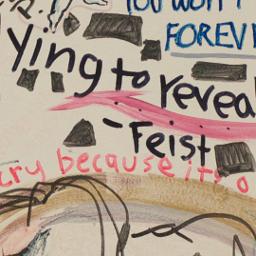 YOU WON'T
FOREV
ying to revea
- Feist
cry because it's o